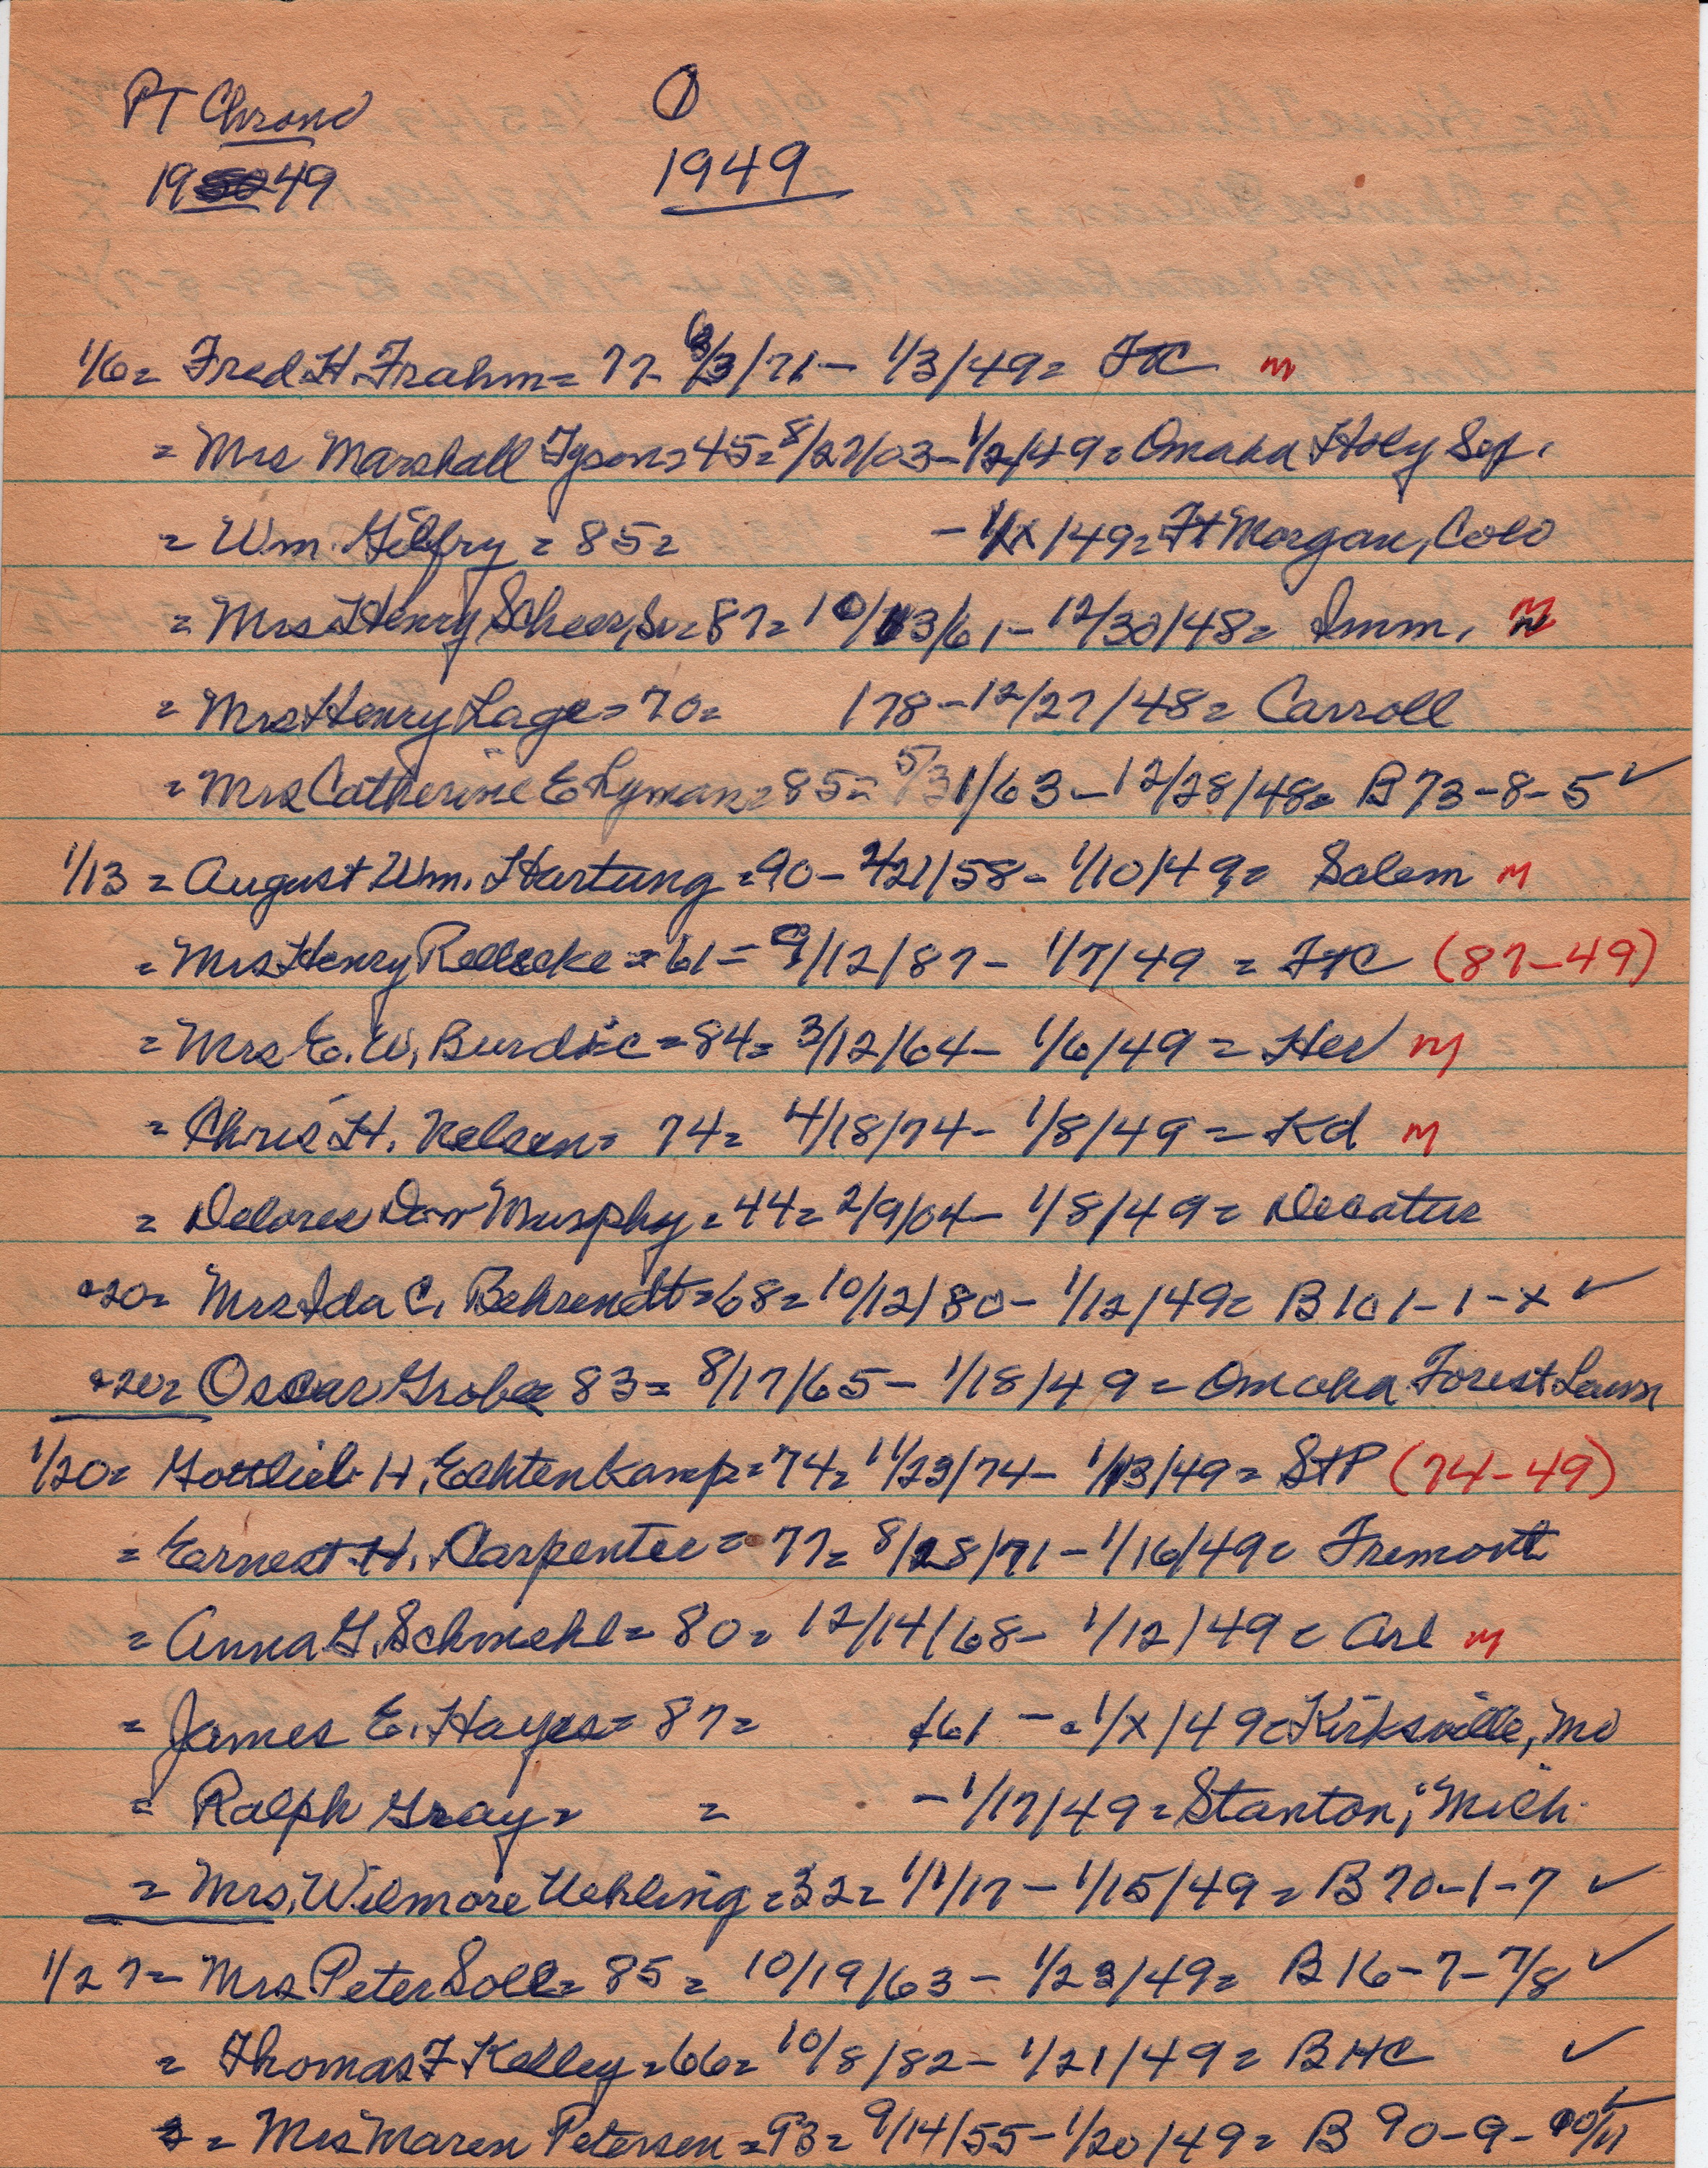 PT Chrono ①
1949 1949
1/6= Fred H. Frahm= 77- 6/3/71- 1/3/49= FtC m
= Mrs Marshall Tyson= 45= 8/27/03- 1/2/49= Omaha Holy Sep.
= Wm. Gilfry = 85= - 1/x/49= Ft Morgan, Colo
= Mrs Henry Scheer, Sr= 87= 10/13/61- 12/30/48= Imm. m
= Mrs Henry Lage= 70= 178- 12/27/48= Carroll
= Mrs Catherine E Lyman= 85= 5/31/63- 12/28/48= B 73-8-5 ✓
1/13 = August Wm. Hartung = 90- 2/21/58- 1/10/49= Salem m
= Mrs Henry = 61- 9/12/87- 1/7/49 = FtC (87-49)
= Mrs E. W. Burdic = 84= 3/12/64- 1/6/49 = Her m
= Chris H. Nelsen= 74= 4/18/74- 1/8/49 = Kd m
= Delores Dorr Murphy = 44= 2/9/04- 1/8/49= Decatur
"20= Mrs Ida C. Behrendt= 68= 10/12/80- 1/12/49= B 101-1-x ✓
"20= Oscar Grobe 83= 8/17/65- 1/18/49 = Omaha Forest Lawn
1/20= Gottlieb H. Echtenkamp= 74= 11/23/74- 1/13/49= StP (74-49)
= Earnest H. Carpenter = 77= 8/28/71- 1/16/49= Fremont
= Anna G. Schmehl= 80= 12/14/68- 1/12/49= Arl m
= James E. Hayes= 87= 161 - 1/x/49= Kirksville, Mo
= Ralph Gray= = - 1/17/49= Stanton, Mich.
= Mrs. Wilmore Uehling = 32= 1/1/17- 1/15/49= B 70-1-7 ✓
1/27= Mrs Peter Soll= 85= 10/19/63- 1/23/49= B 16-7-7/8 ✓
= Thomas F Kelley= 66= 10/8/82- 1/21/49= BHC ✓
= Mrs Maren Petersen = 93= 9/14/55- 1/20/49= B 90-9-10/11 ✓